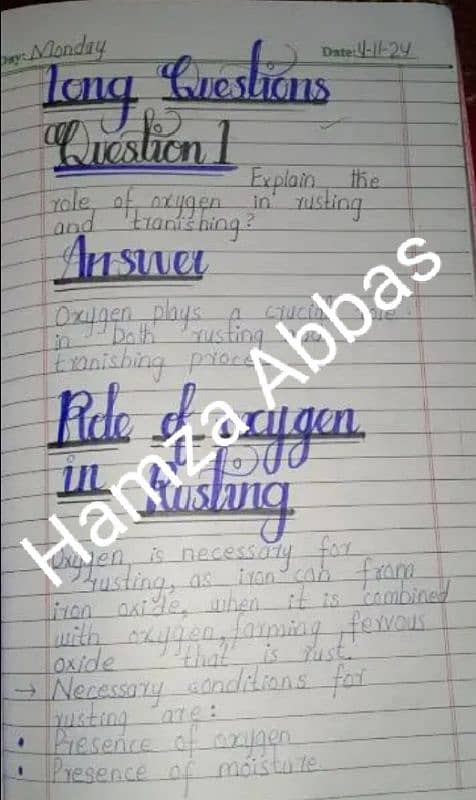 Day: Monday Date: 4-11-24
Long Questions
Question 1
Explain the
role of oxygen in rusting
and tranishing?
Answer
Oxygen plays a crucial role
in both rusting
tranishing
Role of oxygen
in Rusting
Oxygen is necessary for
rusting, as iron can from
iron oxide, when it is combined
with oxygen, forming ferrous
oxide that is rust.
→ Necessary conditions for
rusting are:
• Presence of oxygen
• Presence of moisture
Hamza Abbas